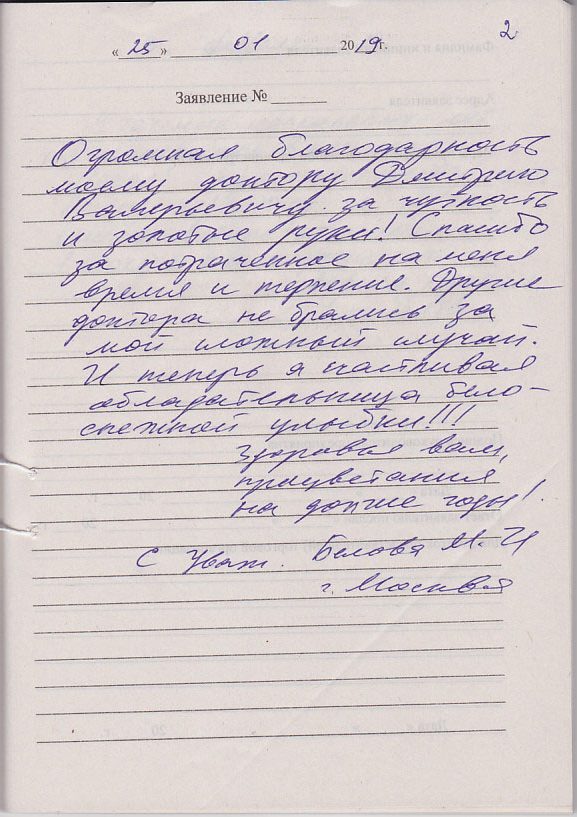 2
« 25 » 01 2019г.
Заявление №
Огромная благодарность
моему доктору Дмитрию
Валерьевичу за чуткость
и золотые руки! Спасибо
за потраченное на меня
время и терпение. Другие
доктора не брались за
мой сложный случай.
И теперь я счастливая
обладательница бело-
снежной улыбки!!!
Здоровья вам,
процветания
на долгие годы!
С Уваж. Белова М. И
г. Москва